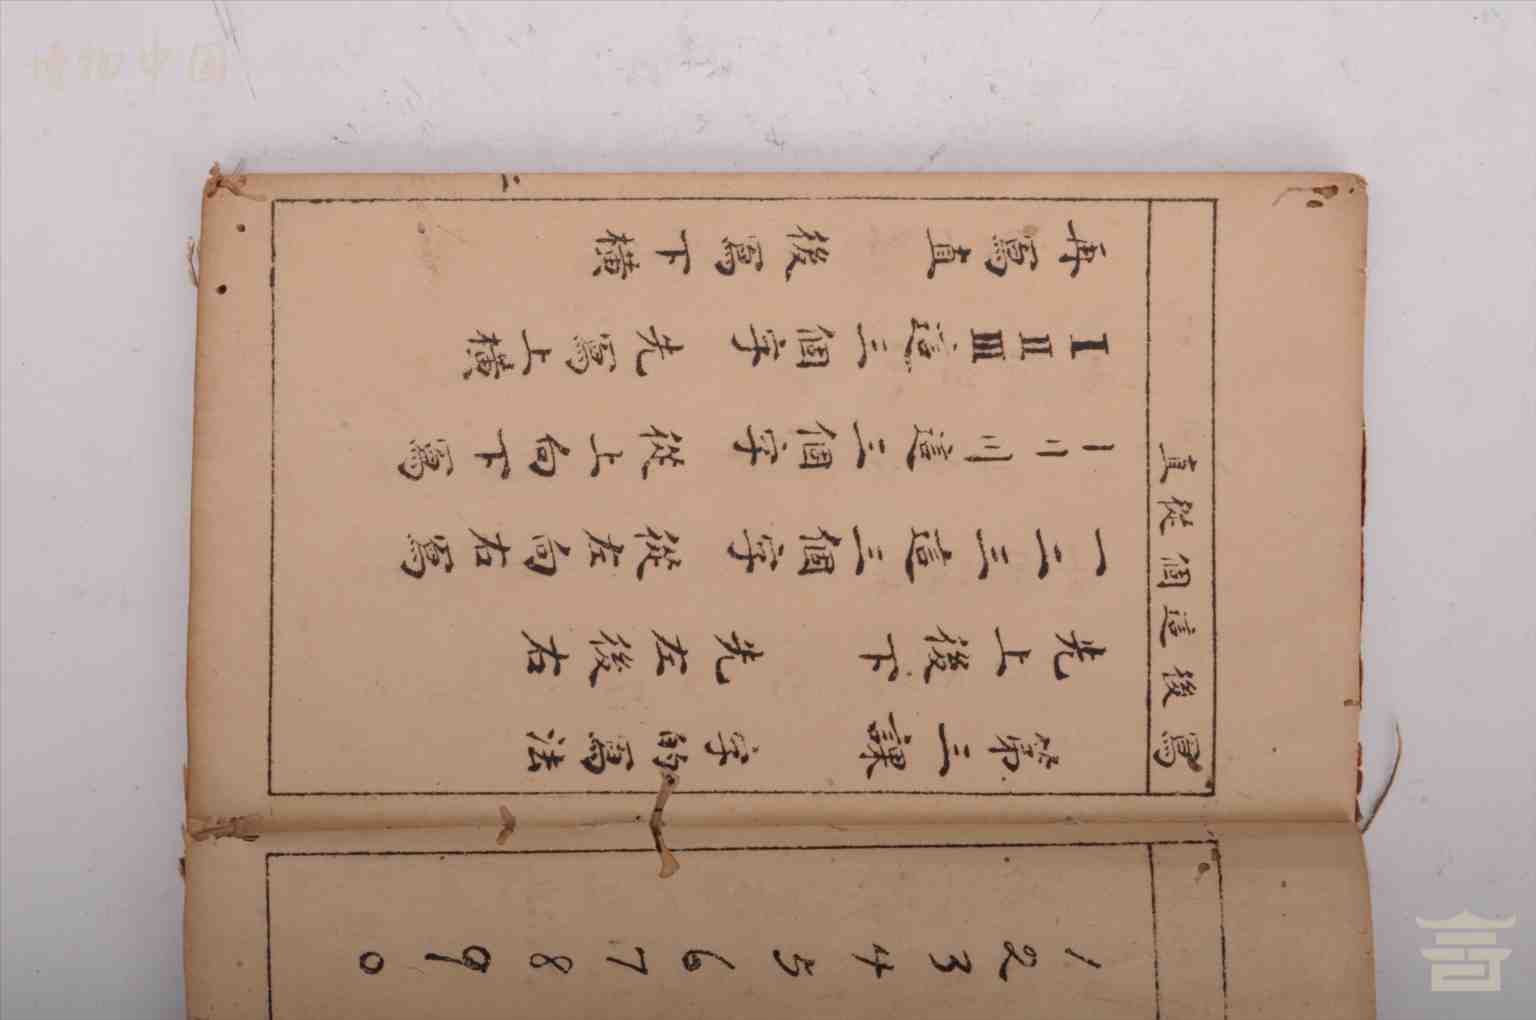 1 2 3 4 5 6 7 8 9 0
寫後這個從直
第三課 字的寫法
先上後下 先左後右
一二三這三個字 從左向右寫
〡〢〣這三個字 從上向下寫
I II III這三個字 先寫上橫
再寫直 後寫下橫
二
博物中国